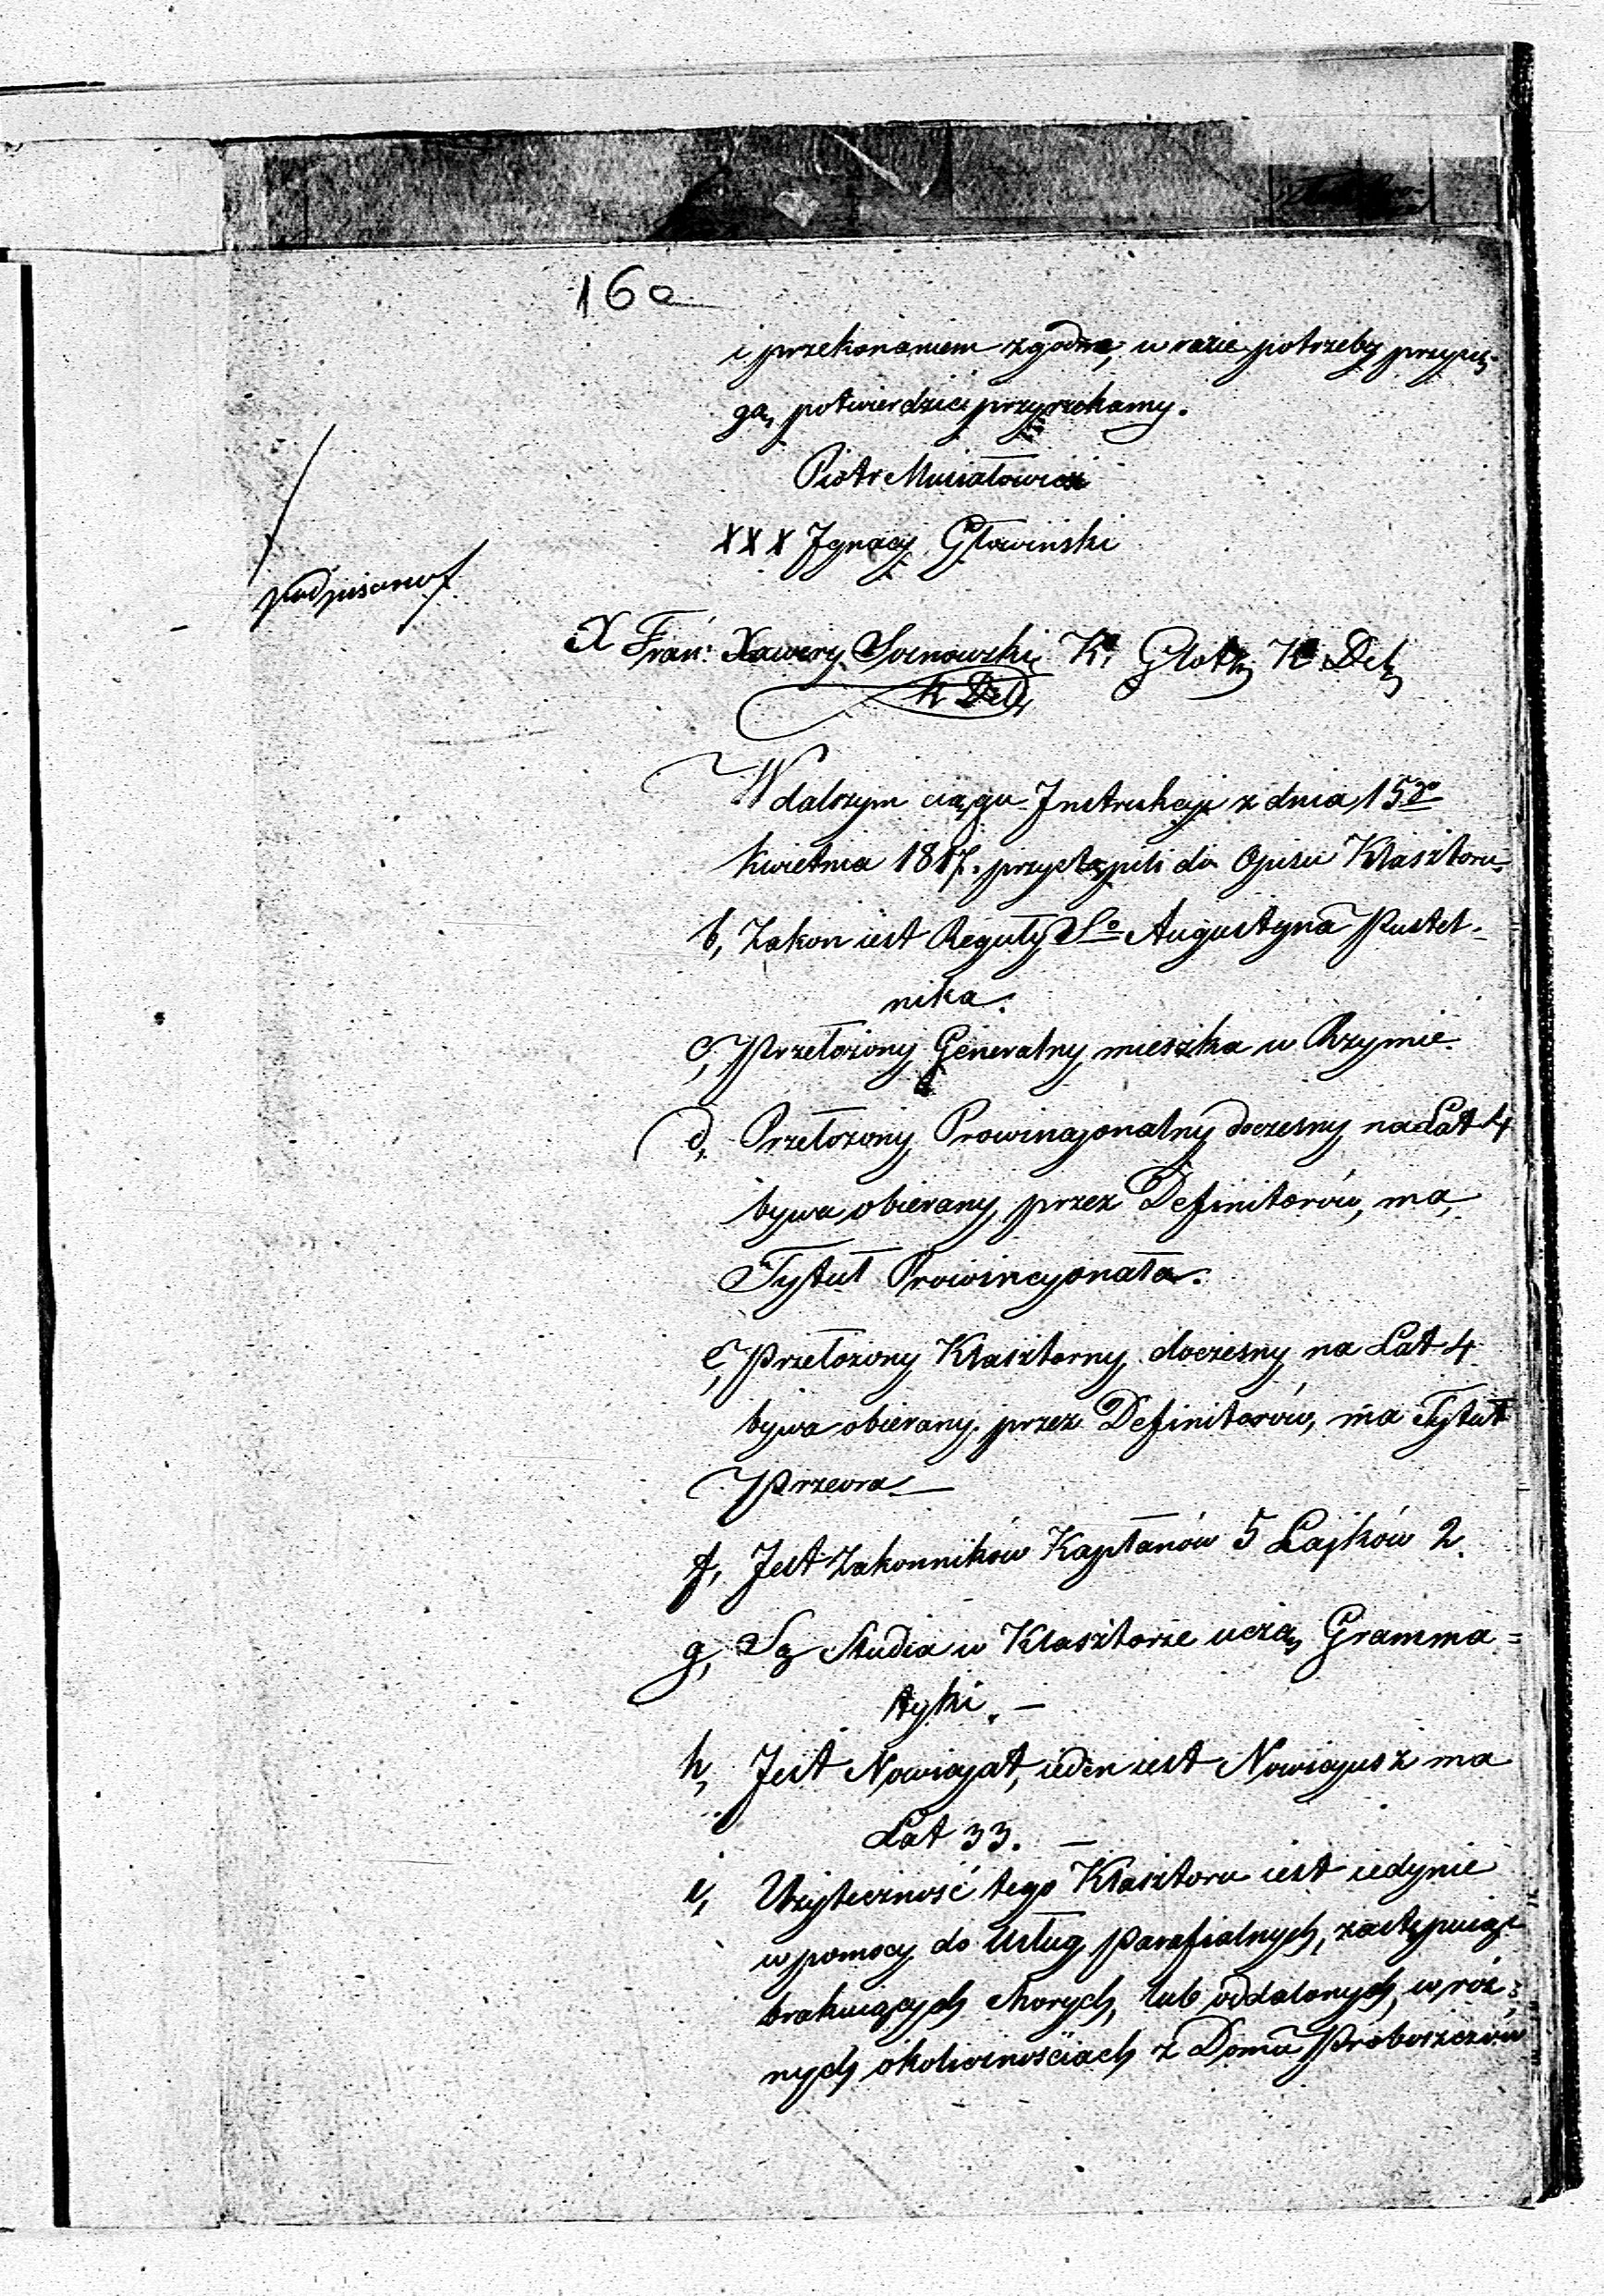 160
i przekonaniem zgodne, w razie potrzeby przysię-
gą potwierdzić przyrzekamy.
Piotr Musiałowicz
XXX Jgnacy Głowinski
podpisano
X Fran: Xawery Sosnowski K. Glotz K. Del
K Del
W dalszym ciągu Jnstrukcyi z dnia 15go
Kwietnia 1817. przystąpili do Opisu Klasztoru
b, Zakon iest Reguły So Augustyna Pustel-
nika.
c, Przełożony Generalny mieszka w Rzymie.
d, Przełożony Prowincyonalny doczesny na Lat 4
bywa obierany przez Definitorów, ma
Tytuł Prowincyonała.
e, Przełożony Klasztorny doczesny na Lat 4
bywa obierany przez Definitorów, ma Tytuł
Przeora
f, Jest Zakonników Kapłanów 5 Lajków 2.
g, Są Studia w Klasztorze uczą Gramma=
tyki. —
h, Jest Nowicyat, ieden iest Nowicyusz ma
Lat 33. —
i, Użyteczność tego Klasztoru iest iedynie
w pomocy do Usług Parafialnych, zastępuiąc
brakuiących chorych, lub oddalonych w róż:
nych okolicznościach z Domu Proboszczów